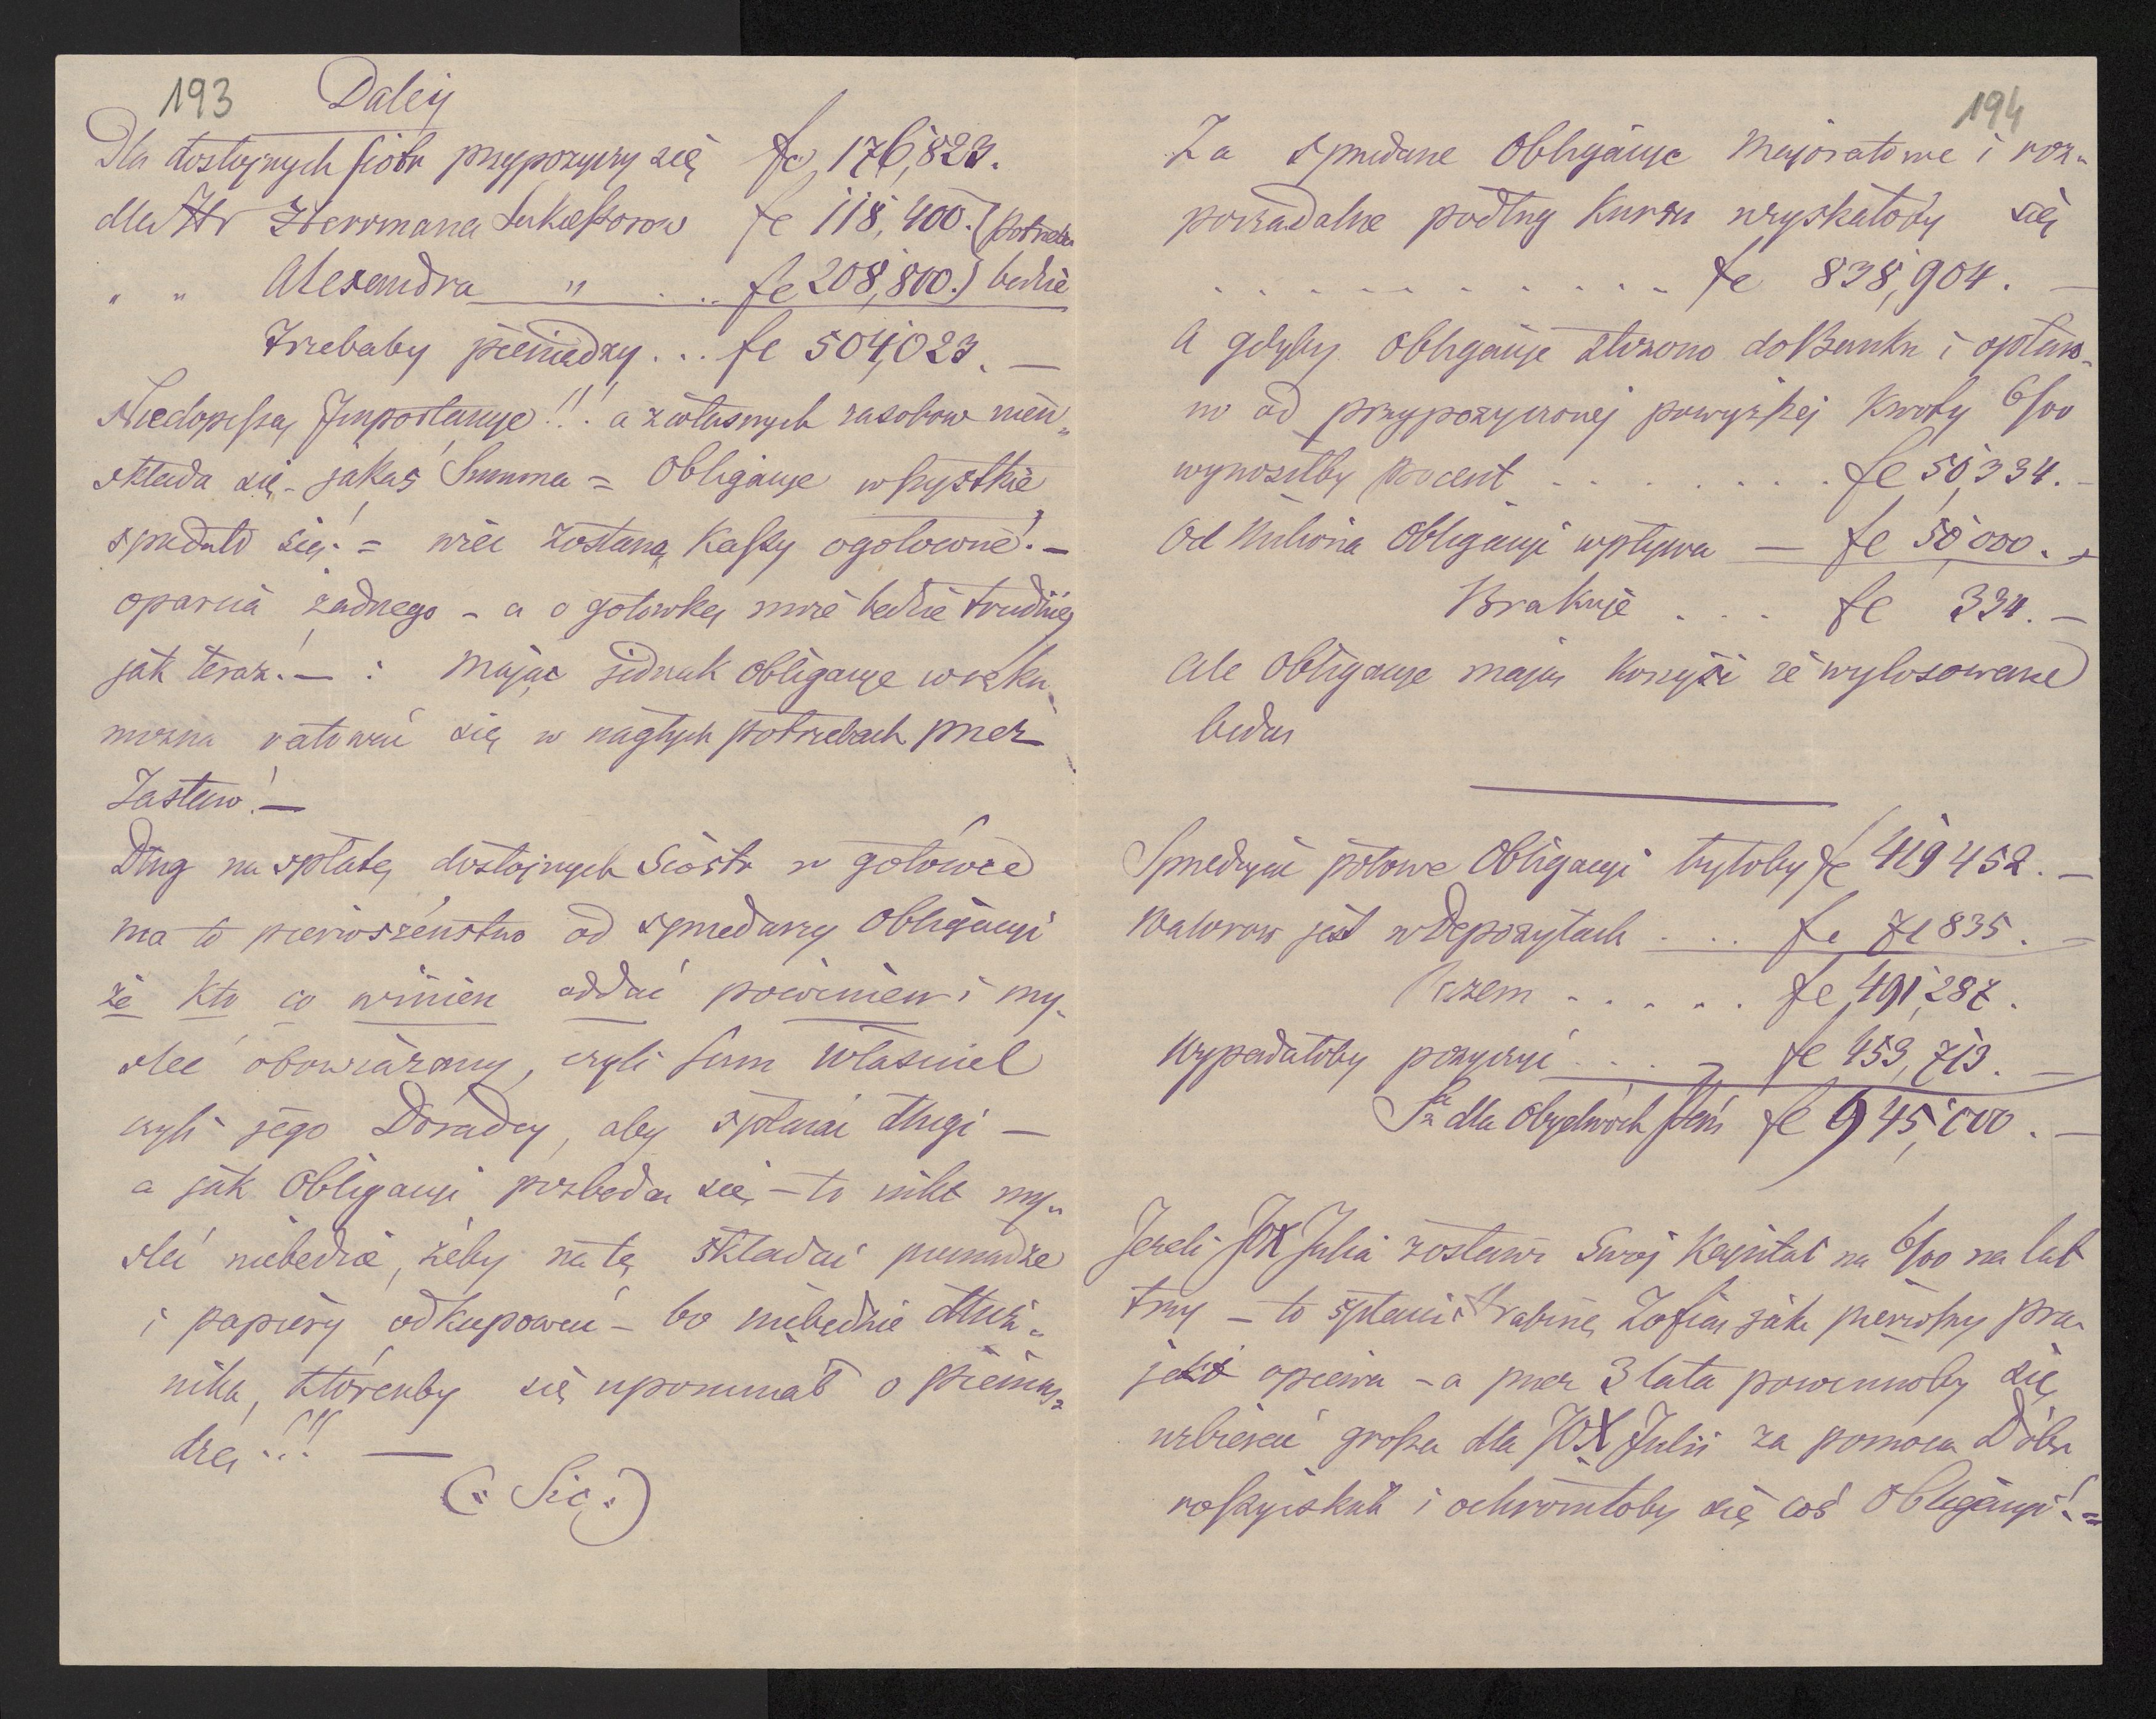 193
Daléj
Dla dostojnych Siostr przypożyczy się fl 176,823.
dla Hr Herrmana Sukceßorow fl 118,400. (potrzeba
" " Alexandra " . .. fl 208,800.) bedzie
Trzebaby pieniędzy ... fl 504,023. —
Niedopißą Importancye!!! a z własnych zasobow nieu„
składa się - jakaś Summa = Obligacye wßystkie
spredało się! = wiec zostaną Kaßy ogołocone! —
oparcia żadnego - a o gotowkę może bedzie trudniej
jak teraz! — : Mając jednak obligacye w ręku
można ratować się w nagłych potrzebach przez
Zastaw! —
Dług na spłatę dostojnych Siostr w gotówce
ma to pierwszeństwo od spredarzy Obligacyi
że kto co winien oddać powinien i my„
śleć obowiązany, czyli sam Właściciel
czyli jego Doradcy, aby spłacać długi —
a jak Obligacyi pozbędą się — to nikt my„
śleć niebedzie, żeby na tę składać pieniądze
i papiery odkupować — bo niebedzie dłuż„
nika, ktorenby się upominał o pienią„
dze!!! —
(: Sic :)
194
Za spredane Obligacye Majoratowe i roz„
porządalne podług Kursu uzyskałoby się
. . . . . . . . . . . . fl 838,904. —
A gdyby Obligacye złożono do Banku i opłaco„
no od przypożyczonej powyżßej Kwoty 6/00
wynosiłby procent . . . . . . . . fl 50,334. -
Od Miliona Obligacyi wpływa — fl 50,000. -
Brakuje . . . fl 334. —
Ale Obligacye mają korzyść że wylosowane
beda
Spredając połowe Obligacyi byłoby fl 419 452. —
Walorow jest w Depozytach . . .. fl 71 835. —
Razem . . . . . fl 491,287.
Wypadałoby pożyczyć . . . . fl 453,713. —
Sa dla obydwóch Pań fl 945,000. —
Jezeli JOX Julia zostawi Swoj Kapitał na 6/00 na lat
trzy — to spłacić Hrabinę Zofią jak pierwßy pro„
jekt opiewa - a przez 3 lata powinnoby się
uzbierać großa dla JOX Julii za pomoca Dóbr
roßyjskich i ochroniłoby się coś Obligacyi! =